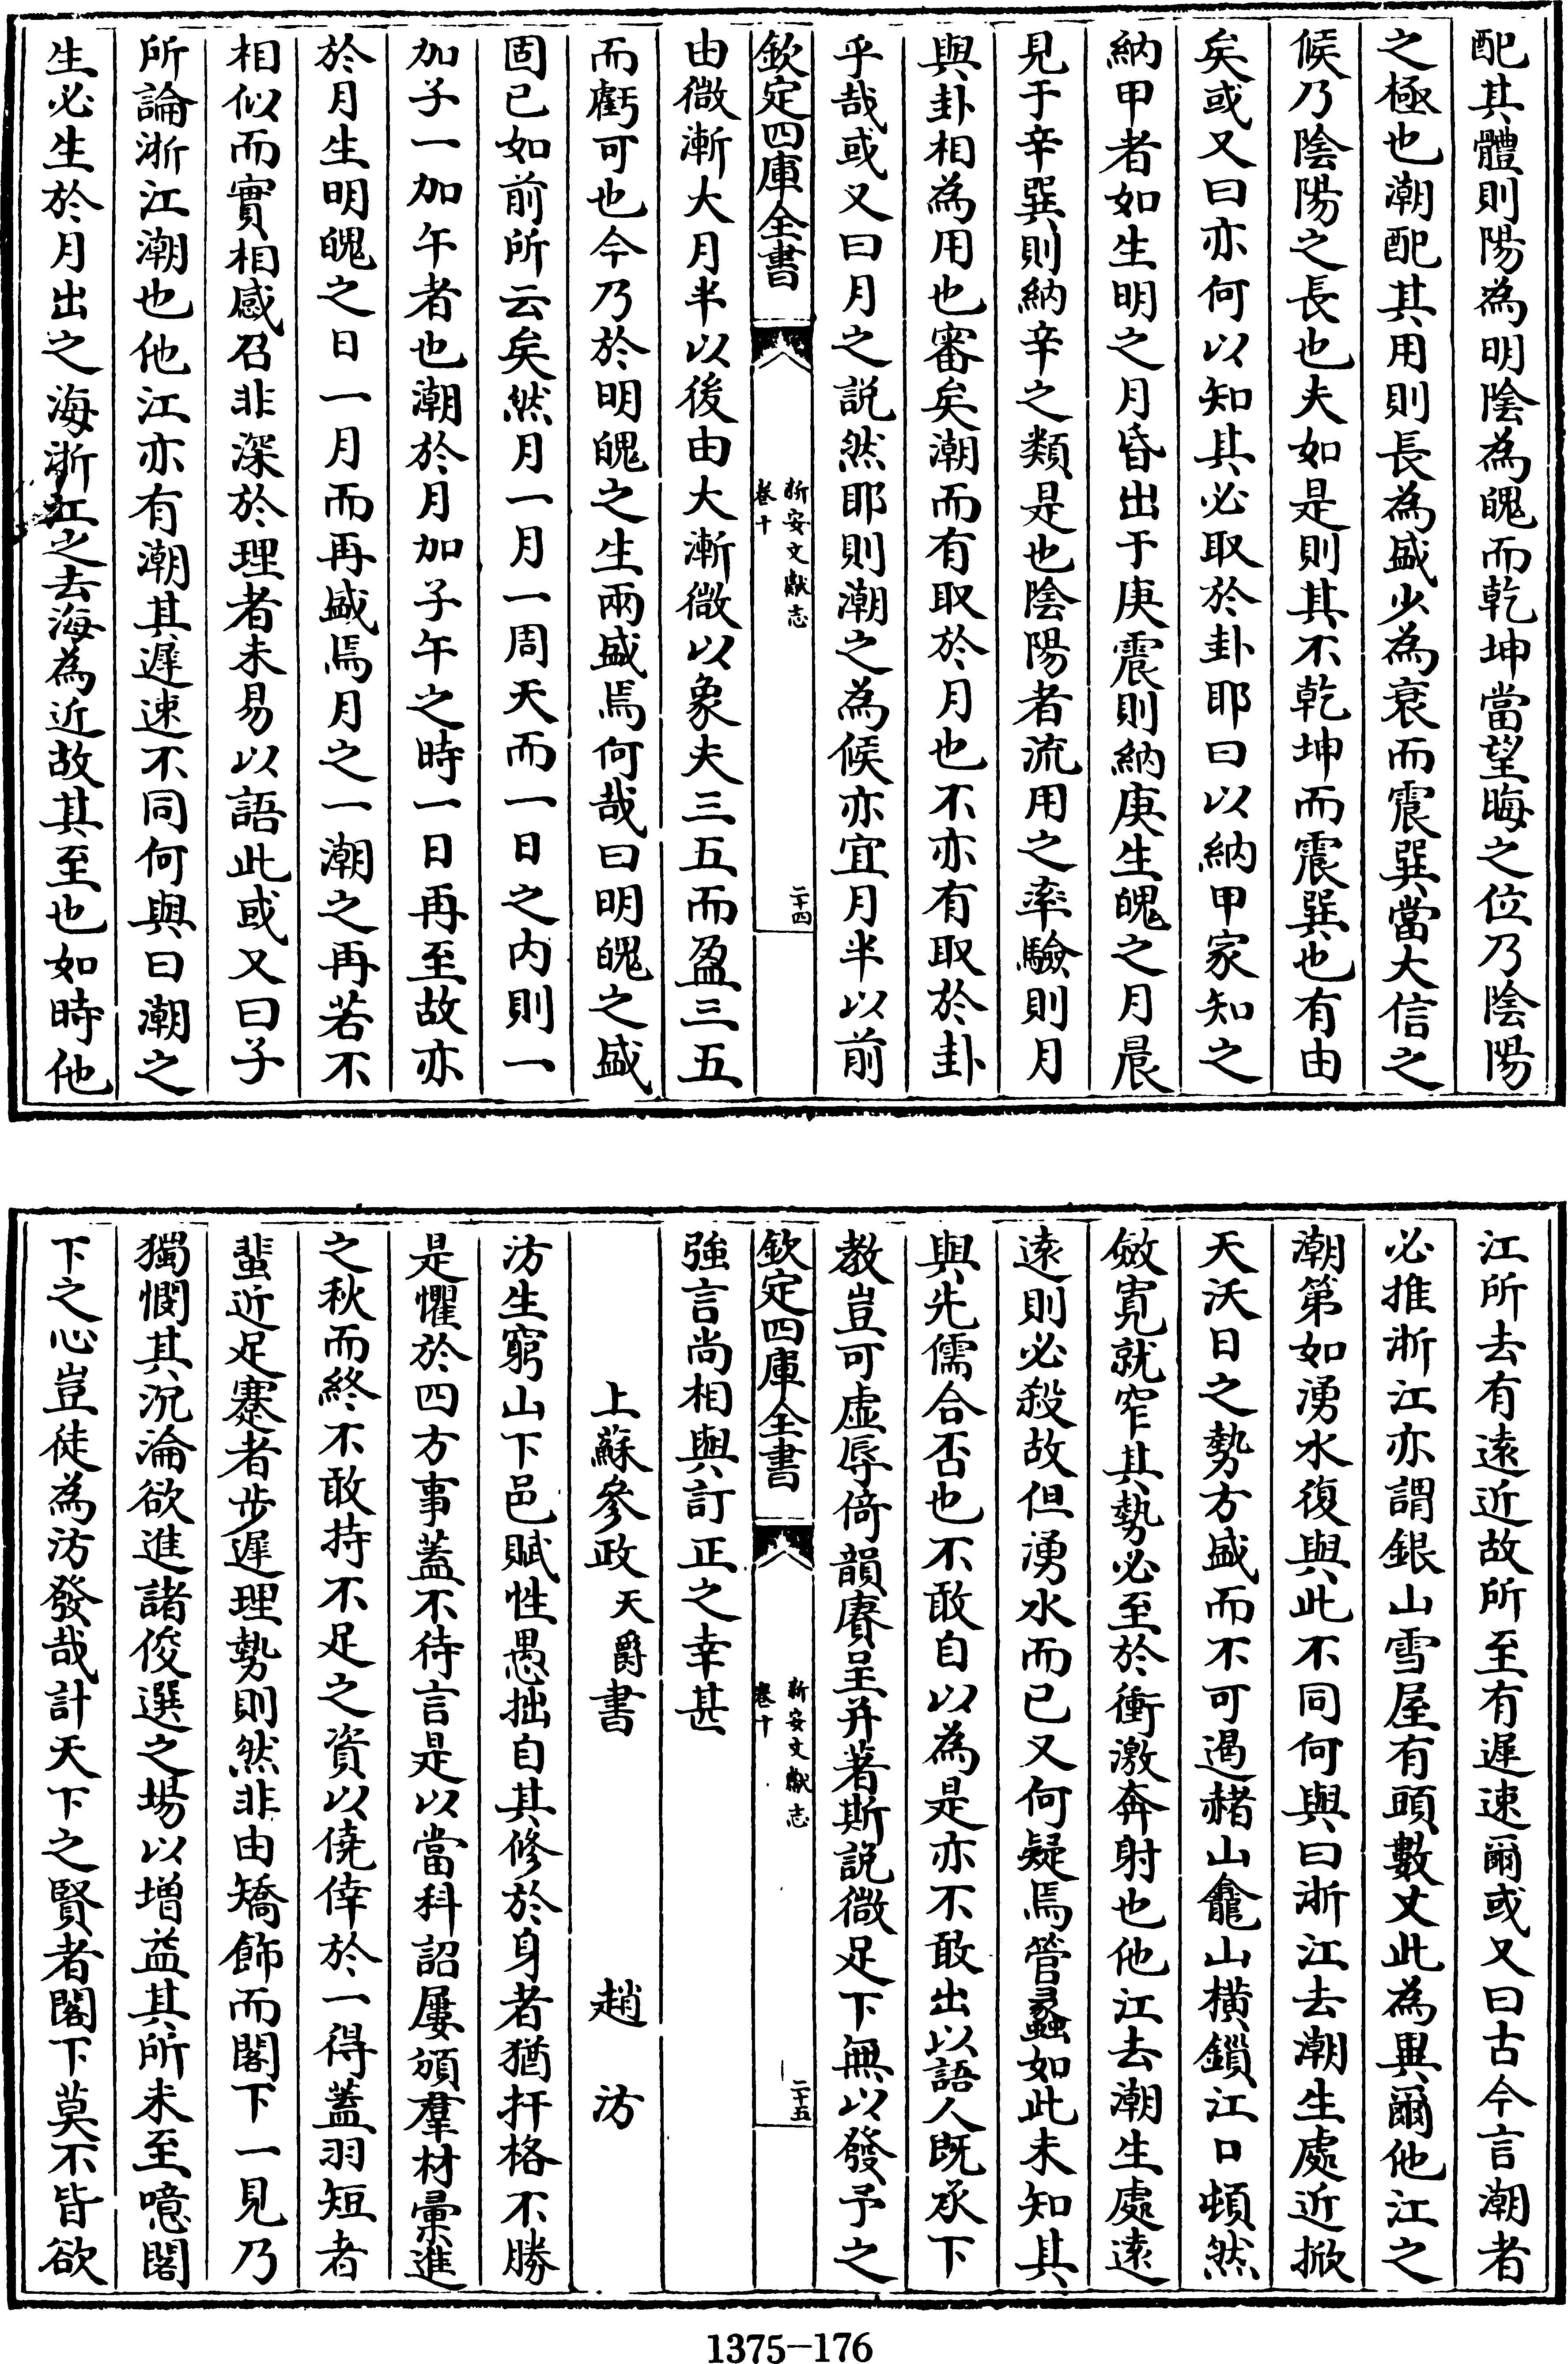 配其體則陽為明陰為魄而乾坤當望晦之位乃陰陽
之極也潮配其用則長為盛少為衰而震巽當大信之
候乃陰陽之長也夫如是則其不乾坤而震巽也有由
矣或又曰亦何以知其必取於卦耶曰以納甲家知之
納甲者如生明之月昏出于庚震則納庚生魄之月晨
見于辛巽則納辛之類是也陰陽者流用之率驗則月
與卦相為用也審矣潮而有取於月也不亦有取於卦
乎哉或又曰月之説然耶則潮之為候亦宜月半以前
欽定四庫全書
新安文獻志
卷十
二十四
由微漸大月半以後由大漸微以象夫三五而盈三五
而虧可也今乃於明魄之生兩盛焉何哉曰明魄之盛
固已如前所云矣然月一月一周天而一日之内則一
加子一加午者也潮於月加子午之時一日再至故亦
於月生明魄之日一月而再盛焉月之一潮之再若不
相似而實相感召非深於理者未易以語此或又曰子
所論浙江潮也他江亦有潮其遲速不同何與曰潮之
生必生於月出之海浙江之去海為近故其至也如時他
江所去有遠近故所至有遲速爾或又曰古今言潮者
必推浙江亦謂銀山雪屋有頭數丈此為異爾他江之
潮第如湧水復與此不同何與曰浙江去潮生處近掀
天沃日之勢方盛而不可遏赭山龕山橫鎖江口頓然
斂寛就窄其勢必至於衝激奔射也他江去潮生處遠
遠則必殺故但湧水而已又何疑焉管蠡如此未知其
與先儒合否也不敢自以為是亦不敢出以語人既承下
教豈可虛辱倚韻賡呈并著斯説微足下無以發予之
欽定四庫全書
新安文獻志
卷十
二十五
強言尚相與訂正之幸甚
上蘇參政天爵書　趙汸
汸生窮山下邑賦性愚拙自其修於身者猶扞格不勝
是懼於四方事蓋不待言是以當科詔屢頒羣材彙進
之秋而終不敢持不足之資以僥倖於一得蓋羽短者
蜚近足蹇者步遲理勢則然非由矯飾而閣下一見乃
獨憫其沉淪欲進諸俊選之場以增益其所未至噫閣
下之心豈徒為汸發哉計天下之賢者閣下莫不皆欲
1375-176